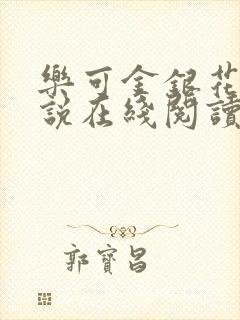 樂可金銀花
說在綫閱讀
郭寶昌